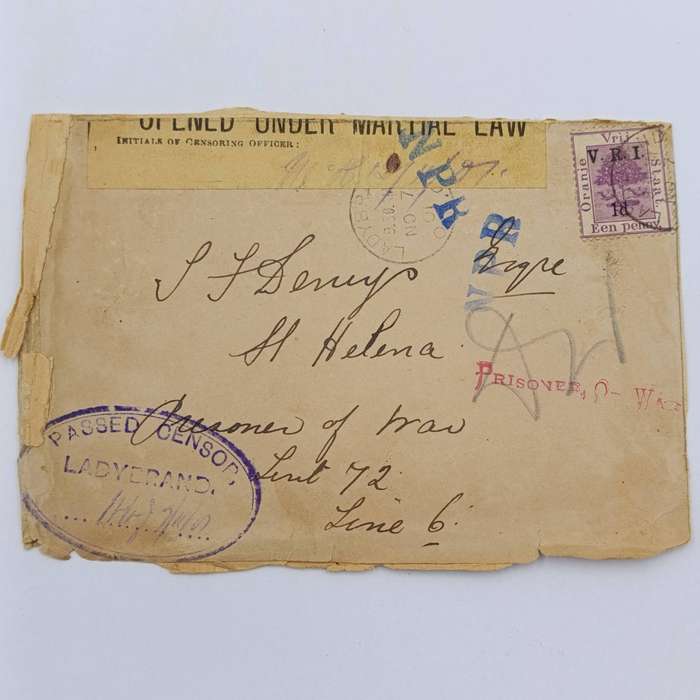 OPENED UNDER MARTIAL LAW
INITIALS OF CENSORING OFFICER:
NPR
NPR
Vrij
Oranje
Staat
V. R. I.
1d
Een penny
Esqre
St Helena
PRISONER O- WAR
Prisoner of War
Tent 72
Line 6
PASSED CENSOR,
LADYBRAND.